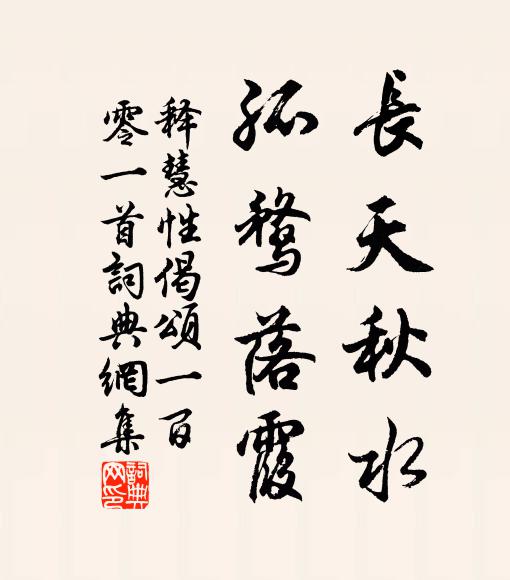 長天秋水
孤鶩落霞
释慧性偈頌一百
零一首詞典網集
詞典
网印